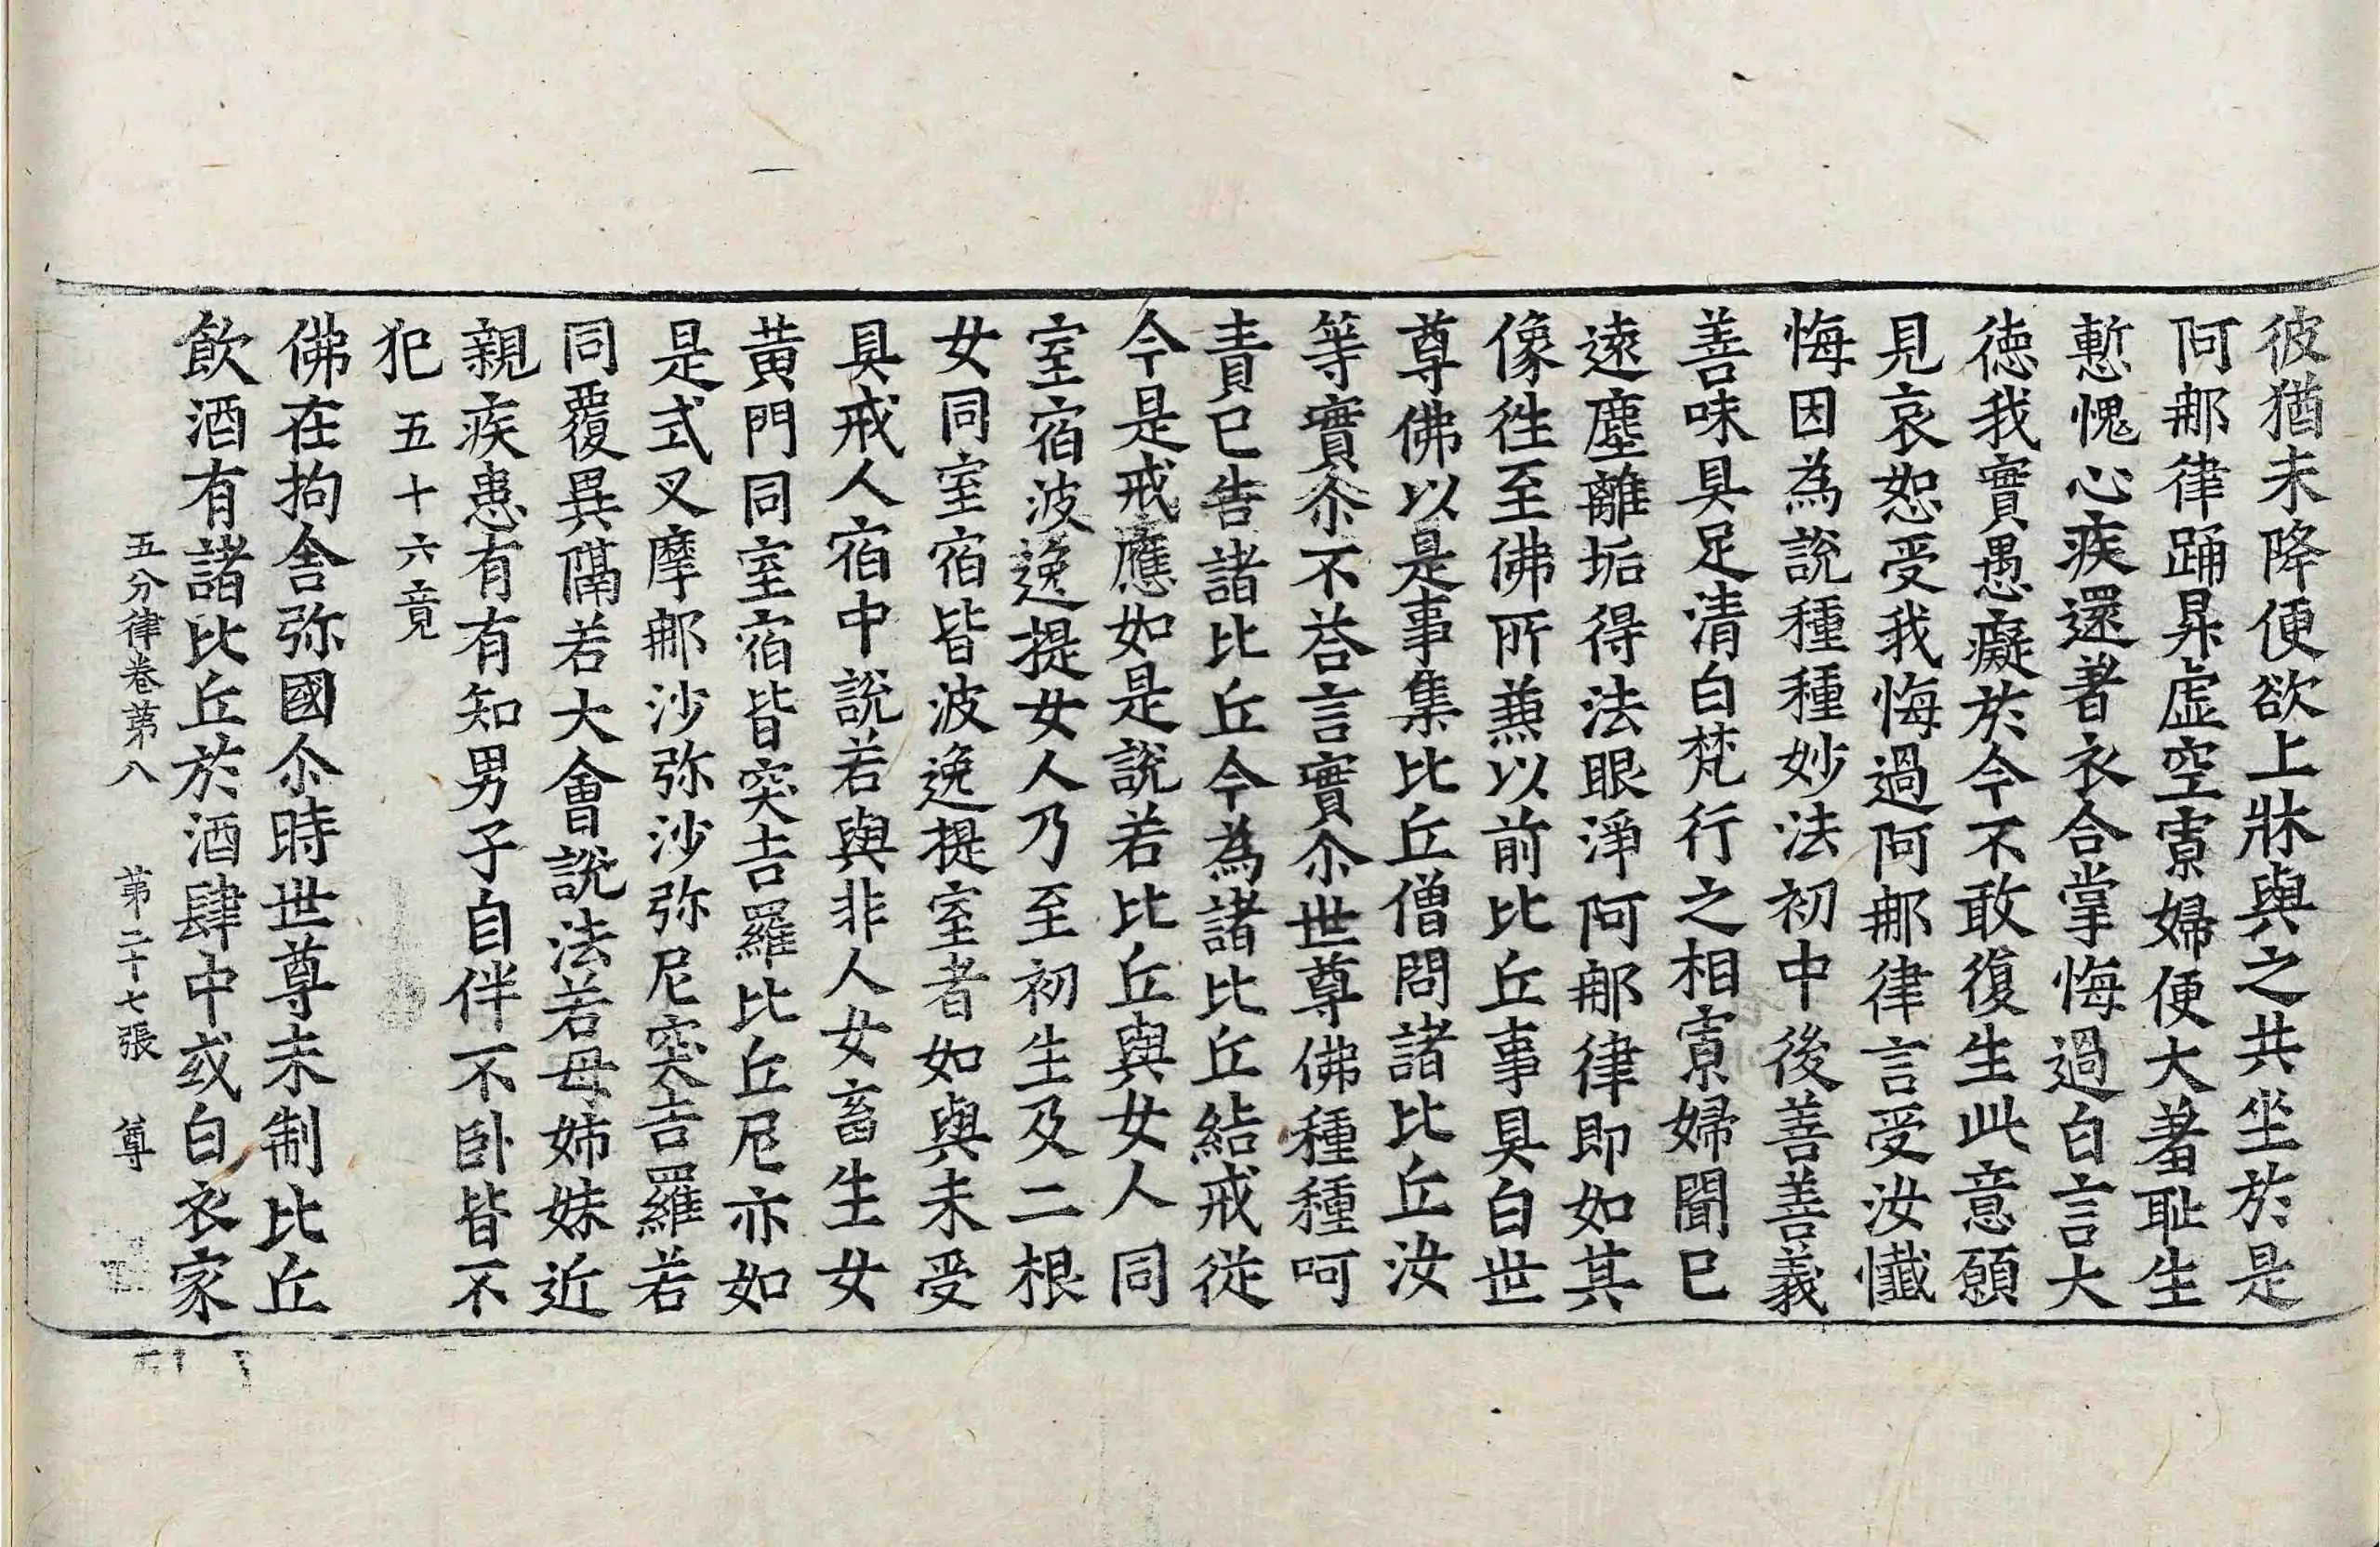 彼猶未降便欲上牀與之共坐於是
阿𨚗律踊昇虛空寡婦便大羞恥生
慙愧心疾還著衣合掌悔過白言大
德我實愚癡於今不敢復生此意願
見哀恕受我悔過阿𨚗律言受汝懺
悔因為說種種妙法初中後善善義
善味具足清白梵行之相寡婦聞已
遠塵離垢得法眼淨阿𨚗律即如其
像徃至佛所䔥以前比丘事具白世
尊佛以是事集比丘僧問諸比丘汝
等實尒不荅言實尒世尊佛種種呵
責已告諸比丘今為諸比丘結戒從
今是戒應如是說若比丘與女人同
室宿波逸提女人乃至初生及二根
女同室宿皆波逸提室者如與未受
具戒人宿中說若與非人女畜生女
黃門同室宿皆突吉羅比丘尼亦如
是式叉摩𨚗沙弥沙弥尼突吉羅若
同覆異隔若大會說法若母姉妹近
親疾患有有知男子自伴不臥皆不
犯五十六竟
佛在拘舍弥國尒時世尊未制比丘
飲酒有諸比丘於酒肆中或白衣家
五分律卷第八 第二十七張 尊